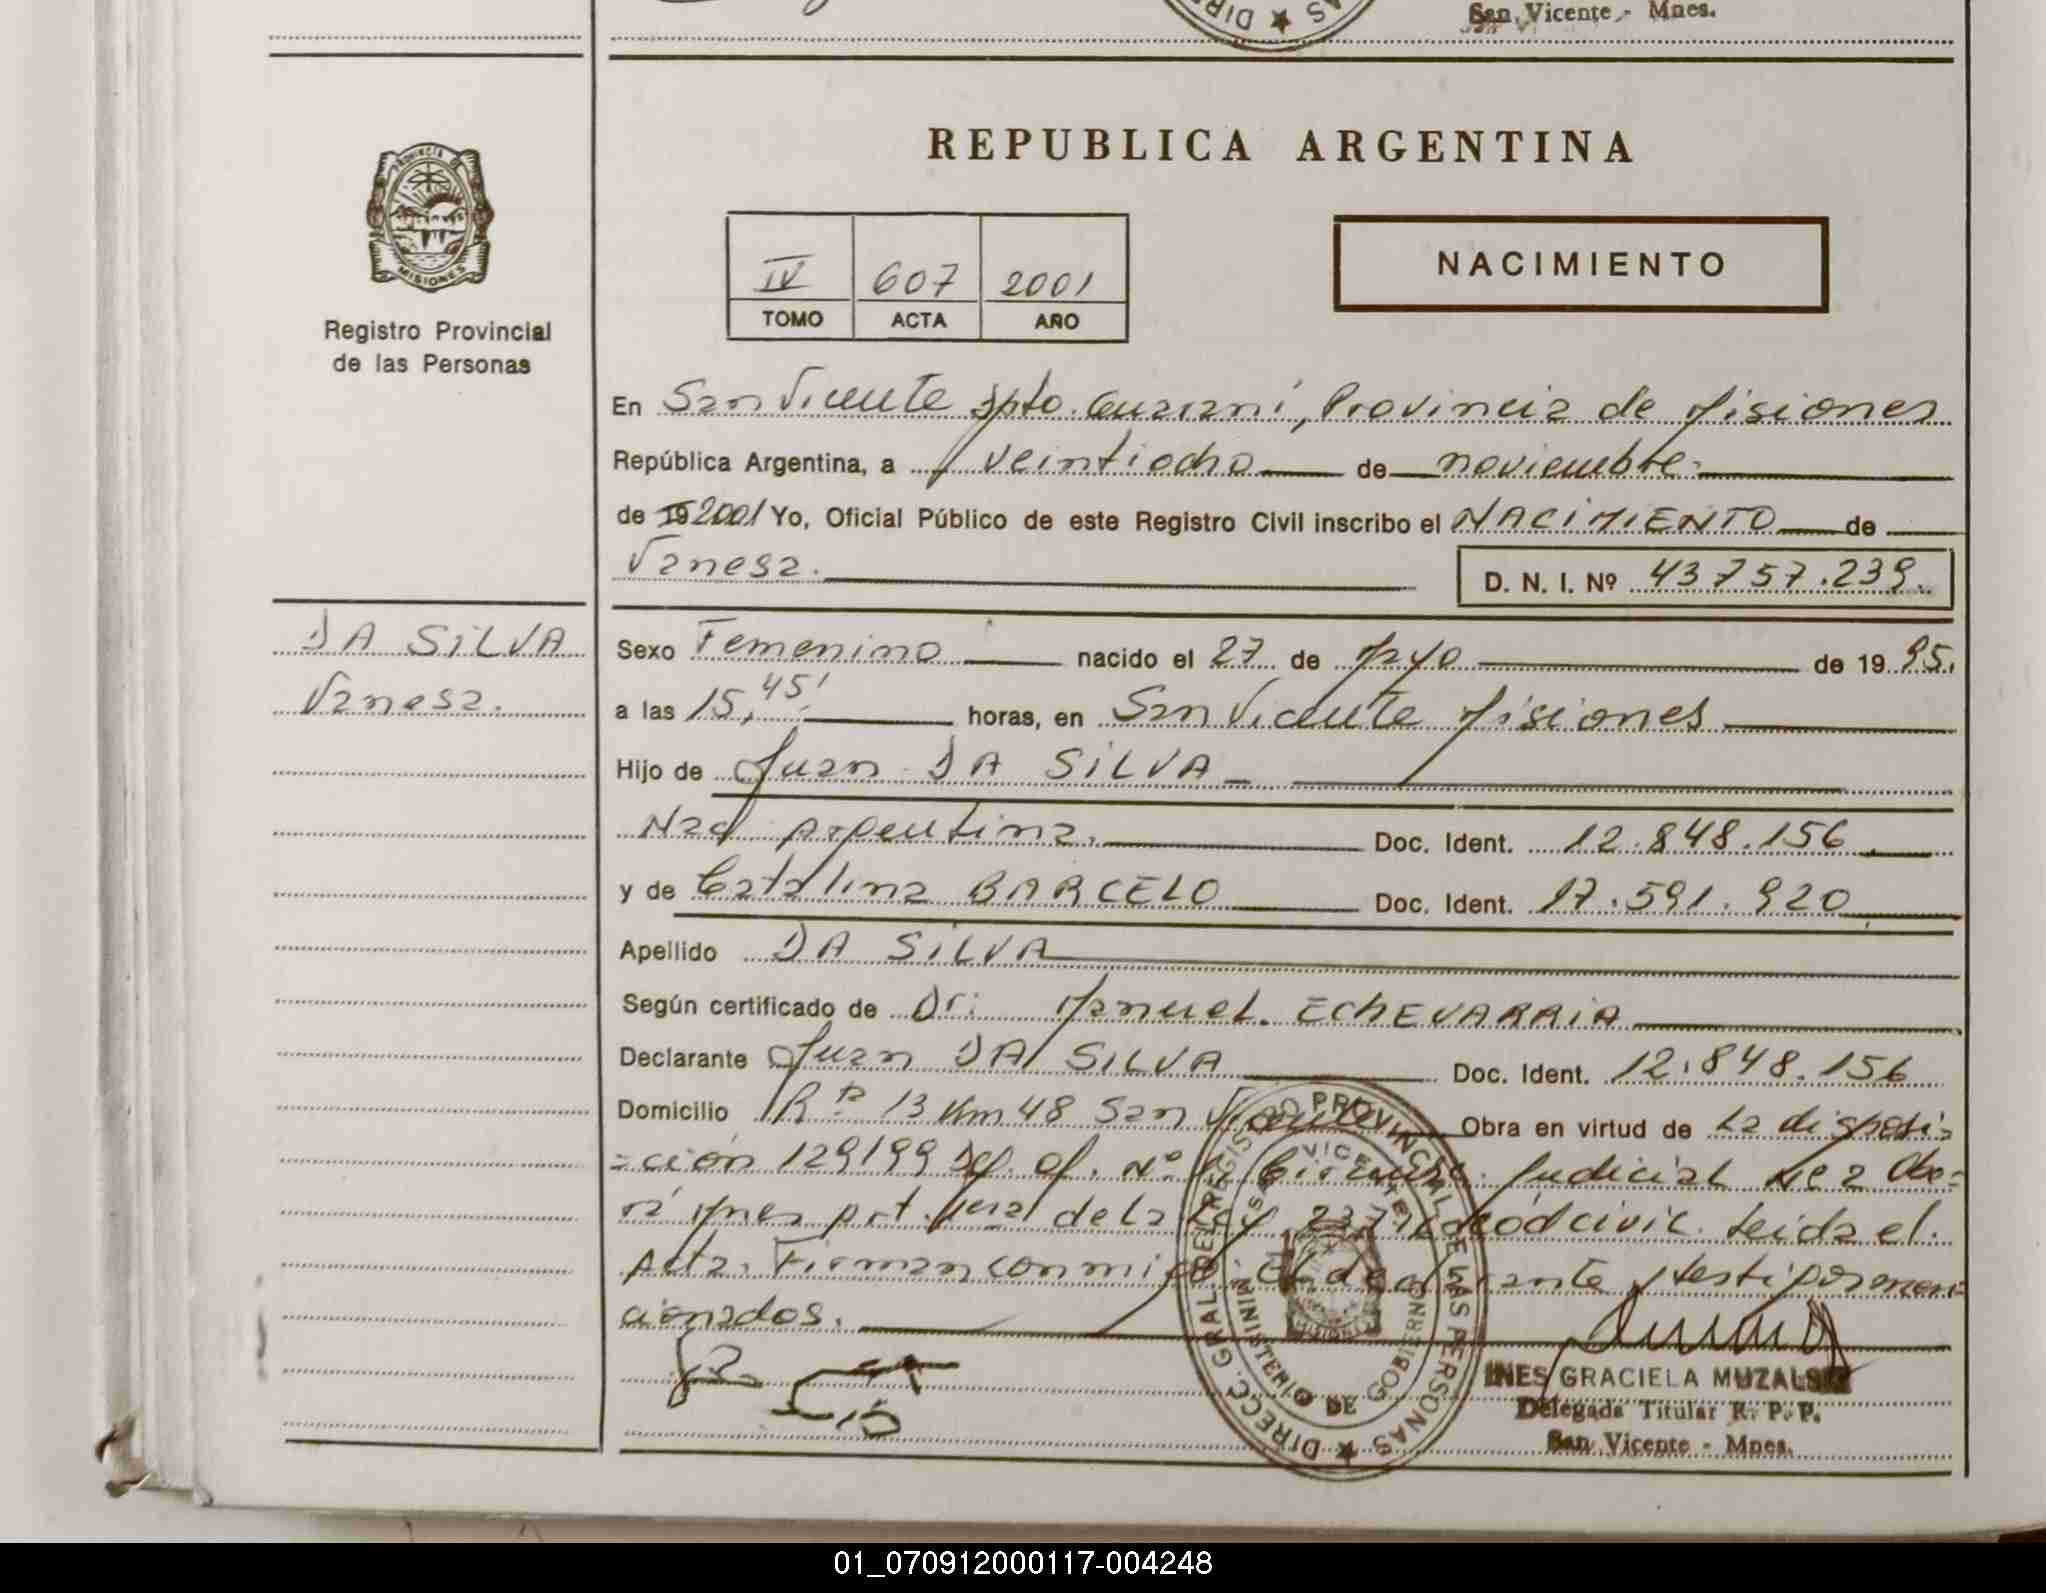 San Vicente - Mnes.
REPUBLICA ARGENTINA
PROVINCIA DE
MISIONES
Registro Provincial
de las Personas
IV 607 2001
TOMO ACTA AÑO
NACIMIENTO
En San Vicente Dpto. Guarani, Provincia de Misiones
República Argentina, a veintiocho de noviembre
de 19 2001 Yo, Oficial Público de este Registro Civil inscribo el NACIMIENTO de
Vanesa.
D. N. I. Nº 43757.239.
DA SILVA
Vanesa.
Sexo Femenino nacido el 27 de Mayo de 19 95.
a las 15,45' horas, en San Vicente Misiones
Hijo de Juan DA SILVA
Nac Argentina. Doc. Ident. 12.848.156
y de Catalina BARCELO Doc. Ident. 17.591.920
Apellido DA SILVA
Según certificado de Dr: Manuel. EChEVARRIA
Declarante Juan DA SILVA Doc. Ident. 12.848.156
Domicilio Rta 13 Km 48 San Vicente Obra en virtud de La disposi=
=ción 129/99 Def. of. Nº Judicial Nº 2 Obe=
rá Mnes Art. de La Ley cod civil. Leida el.
Acta. Firman conmigo el declarante y testigos men=
cionados.
DIRECC. GRAL. DEL REGISTRO PROVINCIAL DE LAS PERSONAS
SAN VICENTE
MINISTERIO DE GOBIERNO
MISIONES
INES GRACIELA
Delegada Titular R. P. P.
San Vicente - Mnes.
01_070912000117-004248